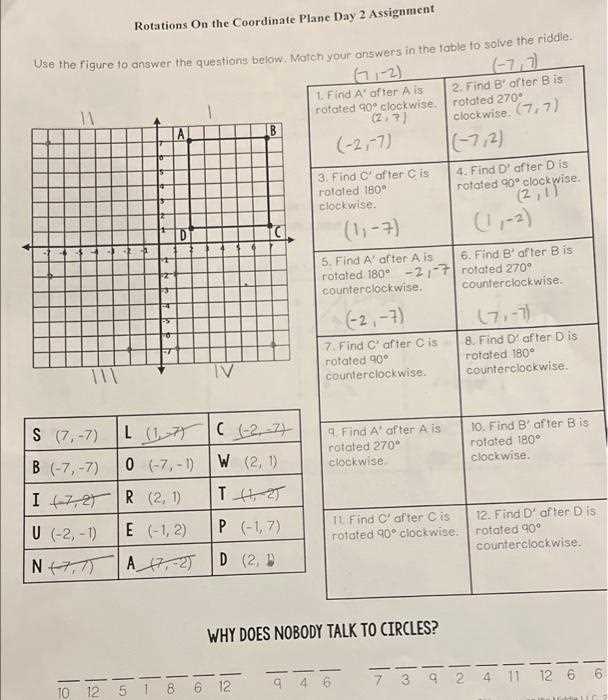 Rotations On the Coordinate Plane Day 2 Assignment
Use the figure to answer the questions below. Match your answers in the table to solve the riddle.
(7,-2)
(-7,7)
1. Find A' after A is
rotated 90° clockwise.
(2,7)
(-2,-7)
2. Find B' after B is
rotated 270°
clockwise. (7,7)
(-7,2)
3. Find C' after C is
rotated 180°
clockwise.
(1,-7)
4. Find D' after D is
rotated 90° clockwise.
(2,1)
(1,-2)
5. Find A' after A is
rotated 180° -2,-7
counterclockwise.
(-2,-7)
6. Find B' after B is
rotated 270°
counterclockwise.
(7,-7)
7. Find C' after C is
rotated 90°
counterclockwise.
8. Find D' after D is
rotated 180°
counterclockwise.
9. Find A' after A is
rotated 270°
clockwise.
10. Find B' after B is
rotated 180°
clockwise.
11. Find C' after C is
rotated 90° clockwise.
12. Find D' after D is
rotated 90°
counterclockwise.
II I
A B
D C
III IV
S (7,-7) L (1,-7) C (-2,-7)
B (-7,-7) O (-7,-1) W (2, 1)
I (-7,2) R (2, 1) T (1,-2)
U (-2,-1) E (-1, 2) P (-1, 7)
N (-7,7) A (7,-2) D (2, 1)
WHY DOES NOBODY TALK TO CIRCLES?
10 12 5 1 8 6 12 9 4 6 7 3 9 2 4 11 12 6 6